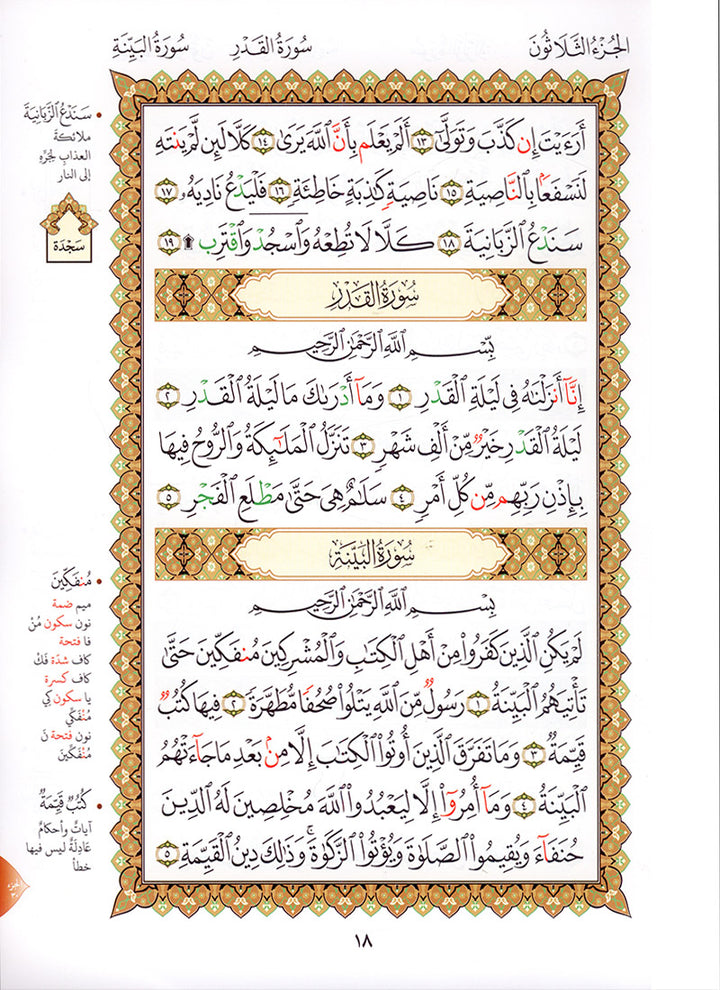 الجزء الثلاثون
سورة القدر
سورة البينة
أَرَءَيْتَ إِن كَذَّبَ وَتَوَلَّىٰٓ ١٣ أَلَمْ يَعْلَم بِأَنَّ ٱللَّهَ يَرَىٰ ١٤ كَلَّا لَئِن لَّمْ يَنتَهِ
لَنَسْفَعًۢا بِٱلنَّاصِيَةِ ١٥ نَاصِيَةٍ كَٰذِبَةٍ خَاطِئَةٍ ١٦ فَلْيَدْعُ نَادِيَهُۥ ١٧
سَنَدْعُ ٱلزَّبَانِيَةَ ١٨ كَلَّا لَا تُطِعْهُ وَٱسْجُدْ وَٱقْتَرِب ۩ ١٩
سُورَةُ القَدْرِ
بِسْمِ ٱللَّهِ ٱلرَّحْمَٰنِ ٱلرَّحِيمِ
إِنَّآ أَنزَلْنَٰهُ فِى لَيْلَةِ ٱلْقَدْرِ ١ وَمَآ أَدْرَىٰكَ مَا لَيْلَةُ ٱلْقَدْرِ ٢
لَيْلَةُ ٱلْقَدْرِ خَيْرٌ مِّنْ أَلْفِ شَهْرٍ ٣ تَنَزَّلُ ٱلْمَلَٰٓئِكَةُ وَٱلرُّوحُ فِيهَا
بِإِذْنِ رَبِّهِم مِّن كُلِّ أَمْرٍ ٤ سَلَٰمٌ هِىَ حَتَّىٰ مَطْلَعِ ٱلْفَجْرِ ٥
سُورَةُ البَيِّنَةِ
بِسْمِ ٱللَّهِ ٱلرَّحْمَٰنِ ٱلرَّحِيمِ
لَمْ يَكُنِ ٱلَّذِينَ كَفَرُوا۟ مِنْ أَهْلِ ٱلْكِتَٰبِ وَٱلْمُشْرِكِينَ مُنفَكِّينَ حَتَّىٰ
تَأْتِيَهُمُ ٱلْبَيِّنَةُ ١ رَسُولٌ مِّنَ ٱللَّهِ يَتْلُوا۟ صُحُفًا مُّطَهَّرَةً ٢ فِيهَا كُتُبٌ
قَيِّمَةٌ ٣ وَمَا تَفَرَّقَ ٱلَّذِينَ أُوتُوا۟ ٱلْكِتَٰبَ إِلَّا مِنۢ بَعْدِ مَا جَآءَتْهُمُ
ٱلْبَيِّنَةُ ٤ وَمَآ أُمِرُوٓا۟ إِلَّا لِيَعْبُدُوا۟ ٱللَّهَ مُخْلِصِينَ لَهُ ٱلدِّينَ
حُنَفَآءَ وَيُقِيمُوا۟ ٱلصَّلَوٰةَ وَيُؤْتُوا۟ ٱلزَّكَوٰةَ ۚ وَذَٰلِكَ دِينُ ٱلْقَيِّمَةِ ٥
• سَنَدْعُ ٱلزَّبَانِيَةَ
ملائكةَ
العذابِ لِجَرِّهِ
إلى النار
سَجْدَة
• مُنفَكِّينَ
ميم ضمة
نون سكون مُنْ
فا فتحة
كاف شدّة فَكْ
كاف كسرة
يا سكون كِي
مُنْفَكِّي
نون فتحة نَ
مُنْفَكِّينَ
• كُتُبٌ قَيِّمَةٌ
آياتٌ وأحكامٌ
عَادِلَةٌ ليس فيها
خطأ
الجزء
٣٠
١٨